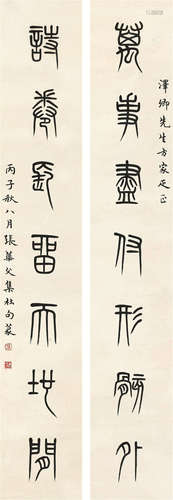 澤卿先生方家疋正
萬事盡付形骸外
詩卷長留天地間
丙子秋八月張華父集杜句篆